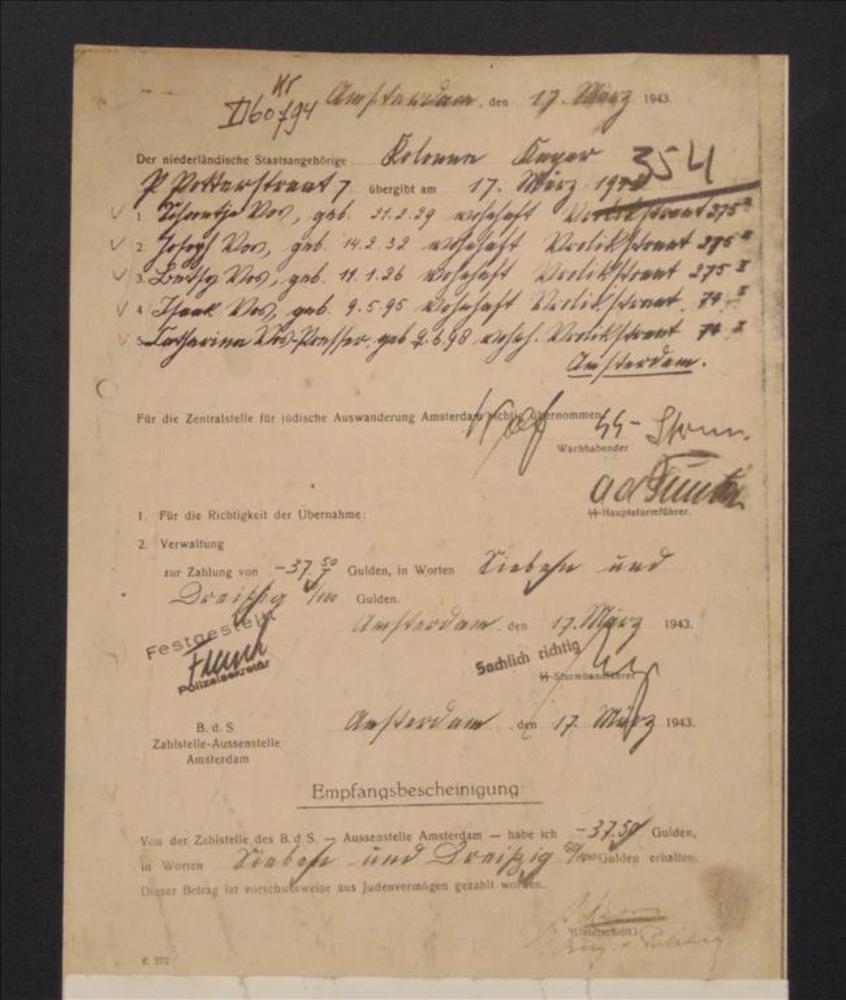 Nr
Amsterdam, den 17. März 1943.
Der niederländische Staatsangehörige Kolonne
354
P Potterstraat 7 übergibt am 17. März
1. Vos, geb. 21.2.29 wohnhaft 275
2. Joseph Vos, geb. 14.2.32 wohnhaft Vrolikstraat 275 II
3. Betsy Vos, geb. 11.1.26 wohnhaft Vrolikstraat 275 II
4. Isaak Vos, geb. 9.5.95 wohnhaft Vrolikstraat 74 I
5. Catharina Vos-Presser, geb. 9.6.98 wohnh. Vrolikstraat 74 I
Amsterdam.
Für die Zentralstelle für jüdische Auswanderung Amsterdam richtig übernommen
SS-
Wachhabender
1. Für die Richtigkeit der Übernahme:
SS-Hauptsturmführer.
2. Verwaltung
zur Zahlung von -37.50 Gulden, in Worten Sieben und
Dreißig Gulden.
Amsterdam, den 17. März 1943.
Festgestellt
Polizeisekretär
Sachlich richtig
SS-Sturmbannführer
Amsterdam, den 17. März 1943.
B. d. S.
Zahlstelle-Aussenstelle
Amsterdam
Empfangsbescheinigung:
Von der Zahlstelle des B. d S. — Aussenstelle Amsterdam — habe ich -37.50 Gulden,
in Worten Sieben und Dreißig 50/100 Gulden erhalten.
Dieser Betrag ist vorschutsweise aus Judenvermögen gezahlt worden.
(Unterschrift)
K 372